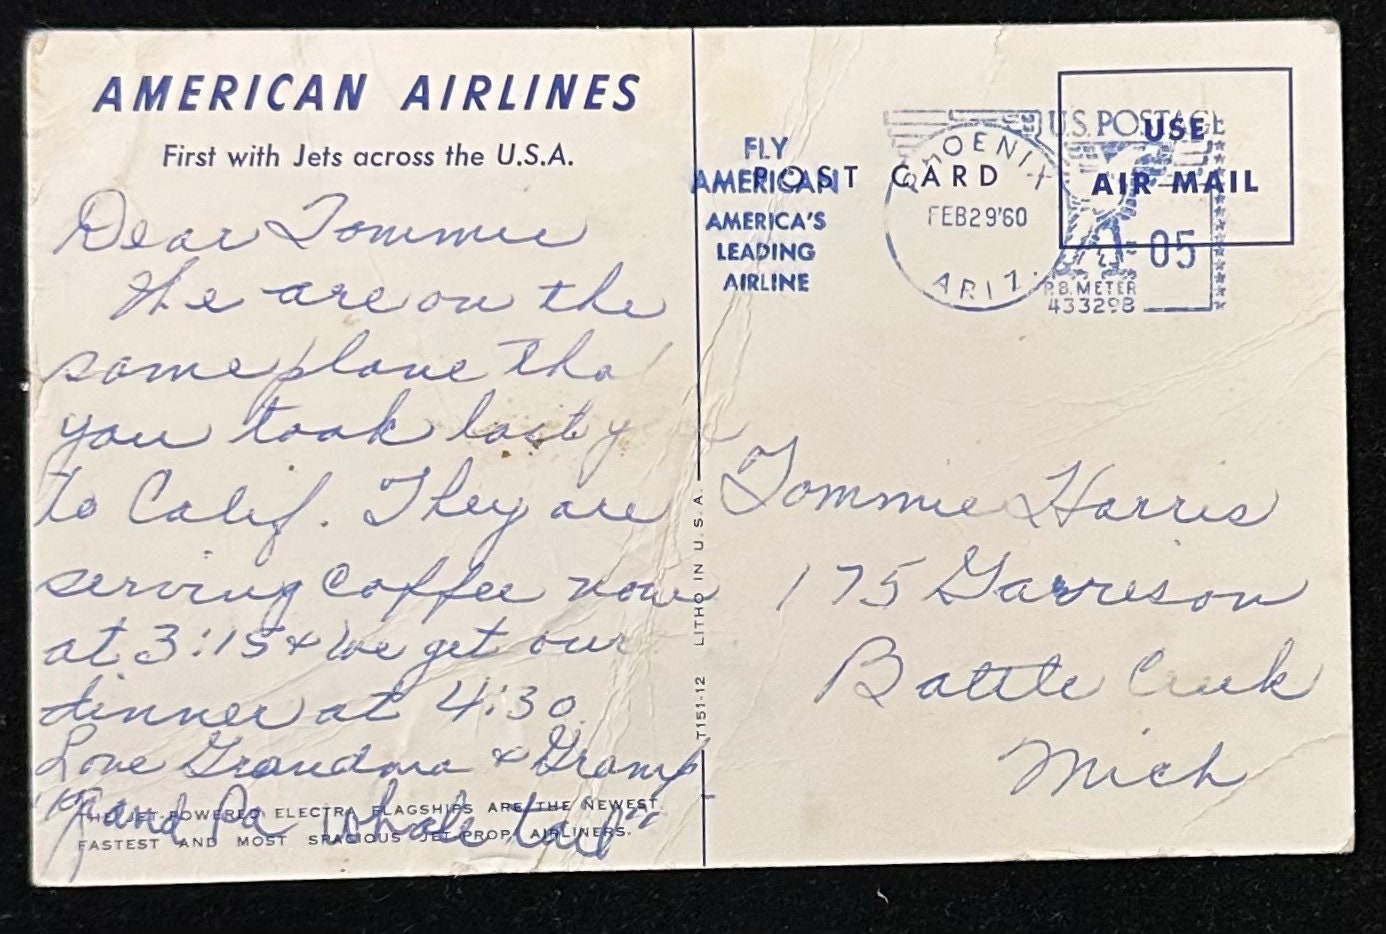 AMERICAN AIRLINES
First with Jets across the U.S.A.
Dear Tommie
We are on the
same plane tha
you took last y
to Calif. They are
serving coffee now
at 3:15 & we get our
dinner at 4:30
Love Grandma & Gramp
"Grand Pa whale tail"
THE JET-POWERED ELECTRA FLAGSHIPS ARE THE NEWEST
FASTEST AND MOST SPACIOUS JET-PROP AIRLINERS.
T151-12 LITHO IN U.S.A.
POST CARD
FLY
AMERICAN
AMERICA'S
LEADING
AIRLINE
PHOENIX
FEB29'60
ARIZ.
U.S. POSTAGE
05
P.B. METER
433298
USE
AIR MAIL
Tommie Harris
175 Garrison
Battle Creek
Mich